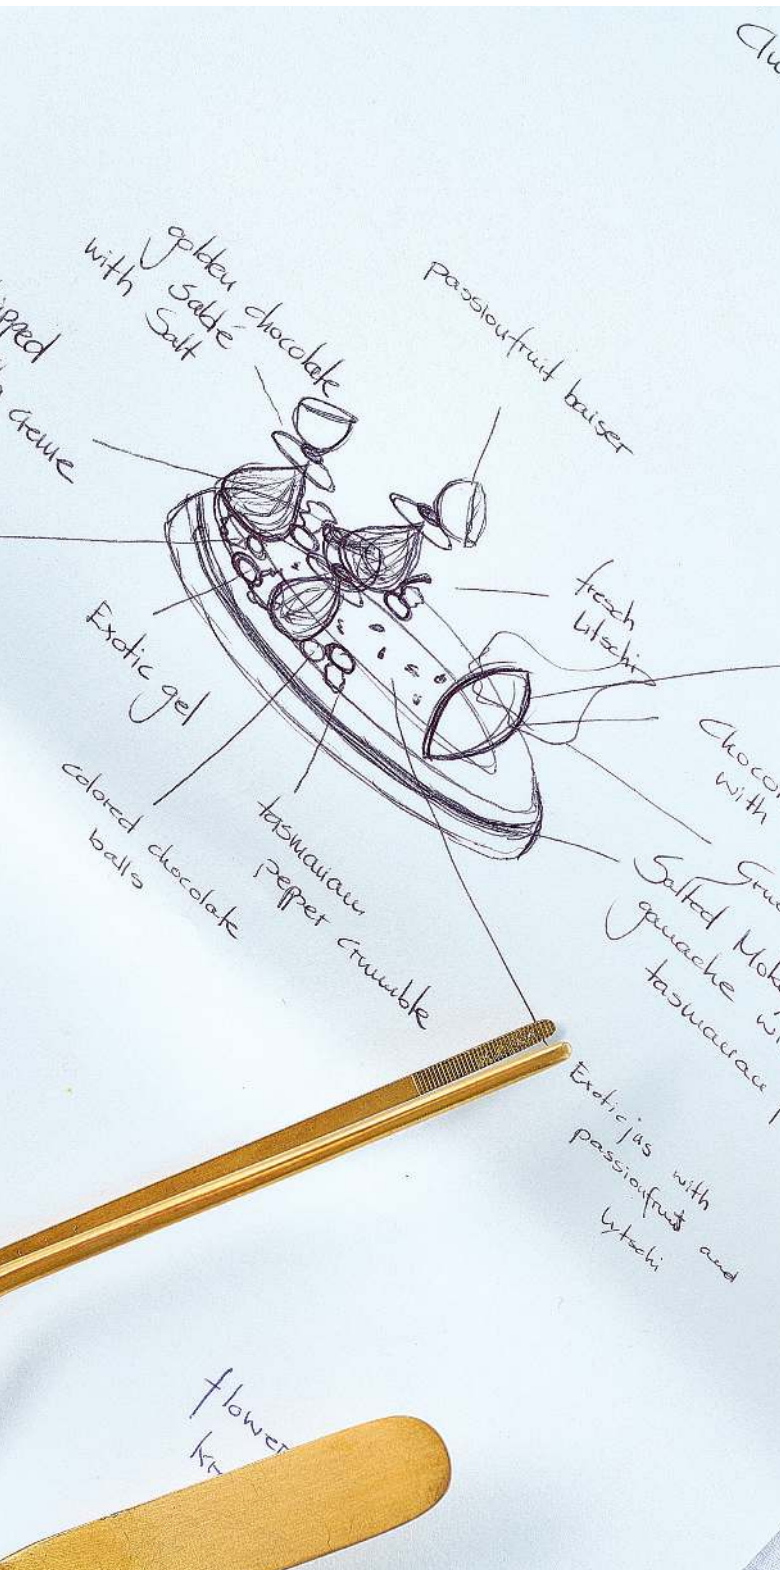 golden chocolate
with Sablé
Salt
passionfruit baiser
creme
fresch
litschi
Exotic gel
colored chocolate
balls
tasmanian
pepper crumble
with
Salted
ganache
tasmanian
Exotic jus with
passionfruit and
lytschi
flower